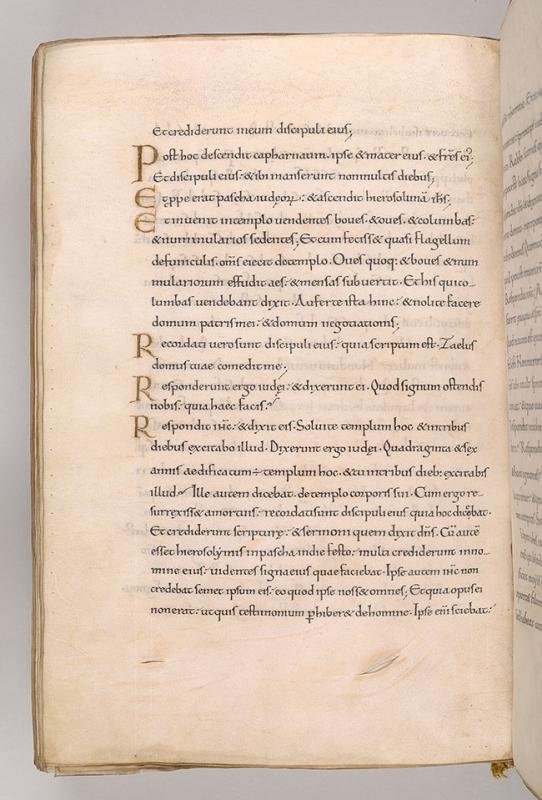 Et crediderunt in eum discipuli eius;
Post hoc descendit capharnaum. ipse & mater eius. & frs ei;
Et discipuli eius. & ibi manserunt non multis diebus;
Et ppe erat pascha iudęor. & ascendit hierosolima ihs;
Et inuenit in templo uendentes boues. & oues. & columbas.
& nummularios sedentes; Et cum feciss& quasi flagellum
de funiculis. oms eiecit de templo. Oues quoq; & boues & num
mulariorum effudit aes. & mensas subuertit. Et his qui co-
lumbas uendebant dixit. Auferte ista hinc. & nolite facere
domum patris mei. & domum negotiationis;
Recordati uero sunt discipuli eius. quia scriptum est. Zaelus
domus tuae comedit me;
Responderunt ergo iudęi. & dixerunt ei. Quod signum ostendis
nobis. quia haec facis?
Respondit ihc. & dixit eis. Soluite templum hoc & in tribus
diebus excitabo illud. Dixerunt ergo iudęi. Quadraginta & sex
annis aedificatum ÷ templum hoc. & tu in tribus dieb; excitabis
illud? Ille autem dicebat. de templo corporis sui. Cum ergo re-
surrexiss& a mortuis. recordati sunt discipuli eius quia hoc dicebat.
Et crediderunt scripturę. & sermoni quem dixit dns. Cu aute
esset hierosolymis in pascha in die festo. multi crediderunt in no-
mine eius. uidentes signa eius quae faciebat. Ipse autem ihc non
credebat semet ipsum eis. eo quod ipse noss& omnes; Et quia opus ei
non erat. ut quis testimonium phiber& de homine. Ipse eni sciebat.